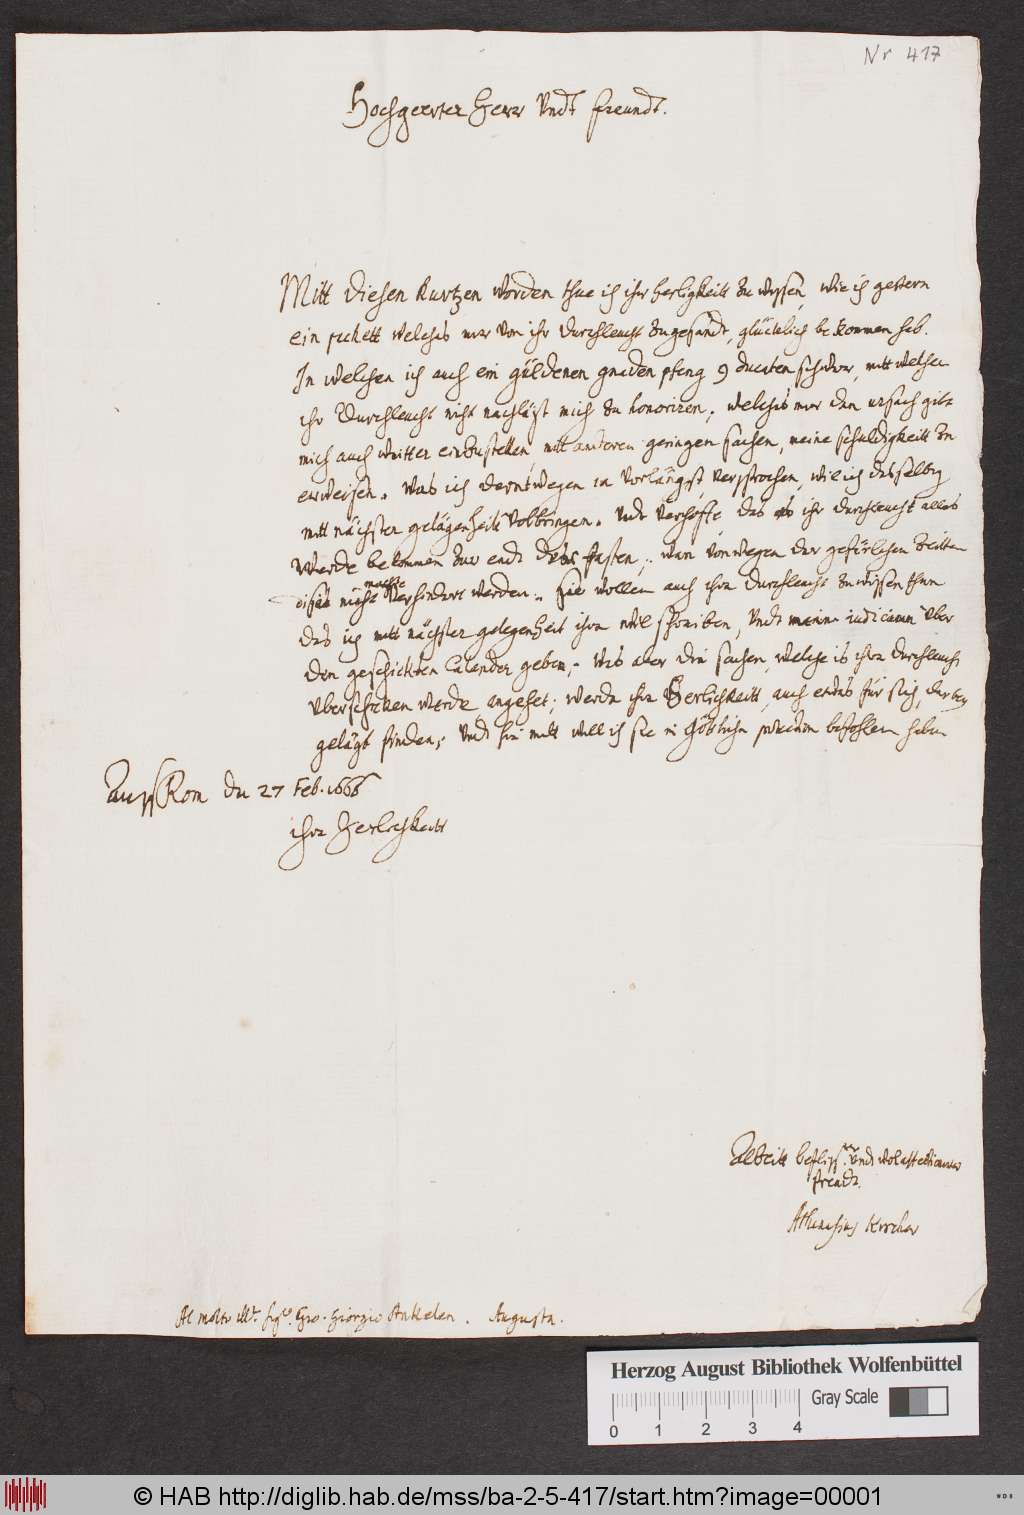 Nr 417
Hochgeerter Herr Undt freundt.
Mitt diesen kurtzen worden thue ich ihr herligkeitt zu wyssen, wie ich gestern
ein packett welches mir von ihr Durchleucht zugesandt, glücklich bekommen hab.
In welchen ich auch ein güldenen gnadenpfeng 9 ducaten schwer, mitt welchen
ihr Durchleucht nicht nachläst mich zu honoriren; welches mir dan ursach gibt
mich auch weitter einzustellen mit anderen geringen sachen, meine schuldigkeitt zu
erweisen. Was ich derentwegen in vorlängst versprochen, wil ich dasselbig
mitt nächster gelägenheitt volbringen. Undt verhoffe das es ihr durchleucht alles
werde bekommen zur endt der fasten, wan vonwegen der gefürlichen zeitten
nicht verhindert werden. Sie wollen auch ihra Durchleucht zu wissen thun
das ich mitt nächster gelegenheit ihra wil schreiben, Undt meine iudicium über
den geschickten Calander geben; was aber die sachen, welche is ihra durchleucht
überschicken werde angehet; werde ihra Herlichkeitt auch etwas für sich, darbey
gelägt finden; Undt hie mitt will ich sie in Göttliche protection befohlen haben
Auß Rom den 27 Feb. 1666
ihra Herlichkeitt
Alzeitt befliss. und
freundt.
Athanasius Kircher
Al molto Ill. sig. Gio. Giorgio Ankelen. Augusta.
Herzog August Bibliothek Wolfenbüttel
Gray Scale
0 1 2 3 4
© HAB http://diglib.hab.de/mss/ba-2-5-417/start.htm?image=00001